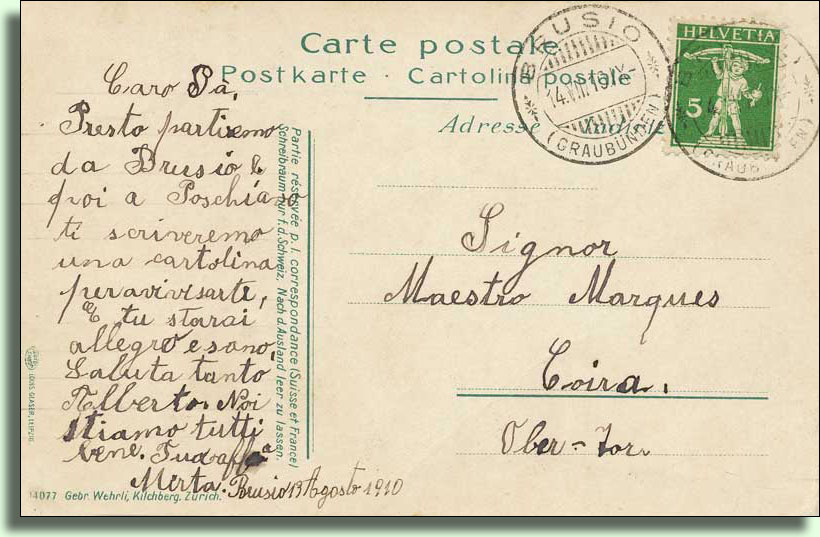 Carte postale
Postkarte · Cartolina postale
Adresse
BRUSIO
14.VIII.10.IX-
(GRAUBÜNDEN)
HELVETIA
5
(GRAUB EN)
Caro Pà,
Presto partiremo
da Brusio e
poi a Poschiavo
ti scriveremo
una cartolina
per avivisarte,
E tu starai
allegro e sano,
Saluta tanto
Alberto. Noi
stiamo tutti
bene. Tua
Merta. Brusio 13 Agosto 1910
Partie résesvée p. l. correspondance (Suisse et France)
Schreibraum nur f. d. Schweiz. Nach d. Ausland leer zu lassen.
Signor
Maestro Marques
Coira.
Ober-Tor.
LOUIS GLASER, LEIPZIG.
14077 Gebr. Wehrli, Kilchberg. Zürich.